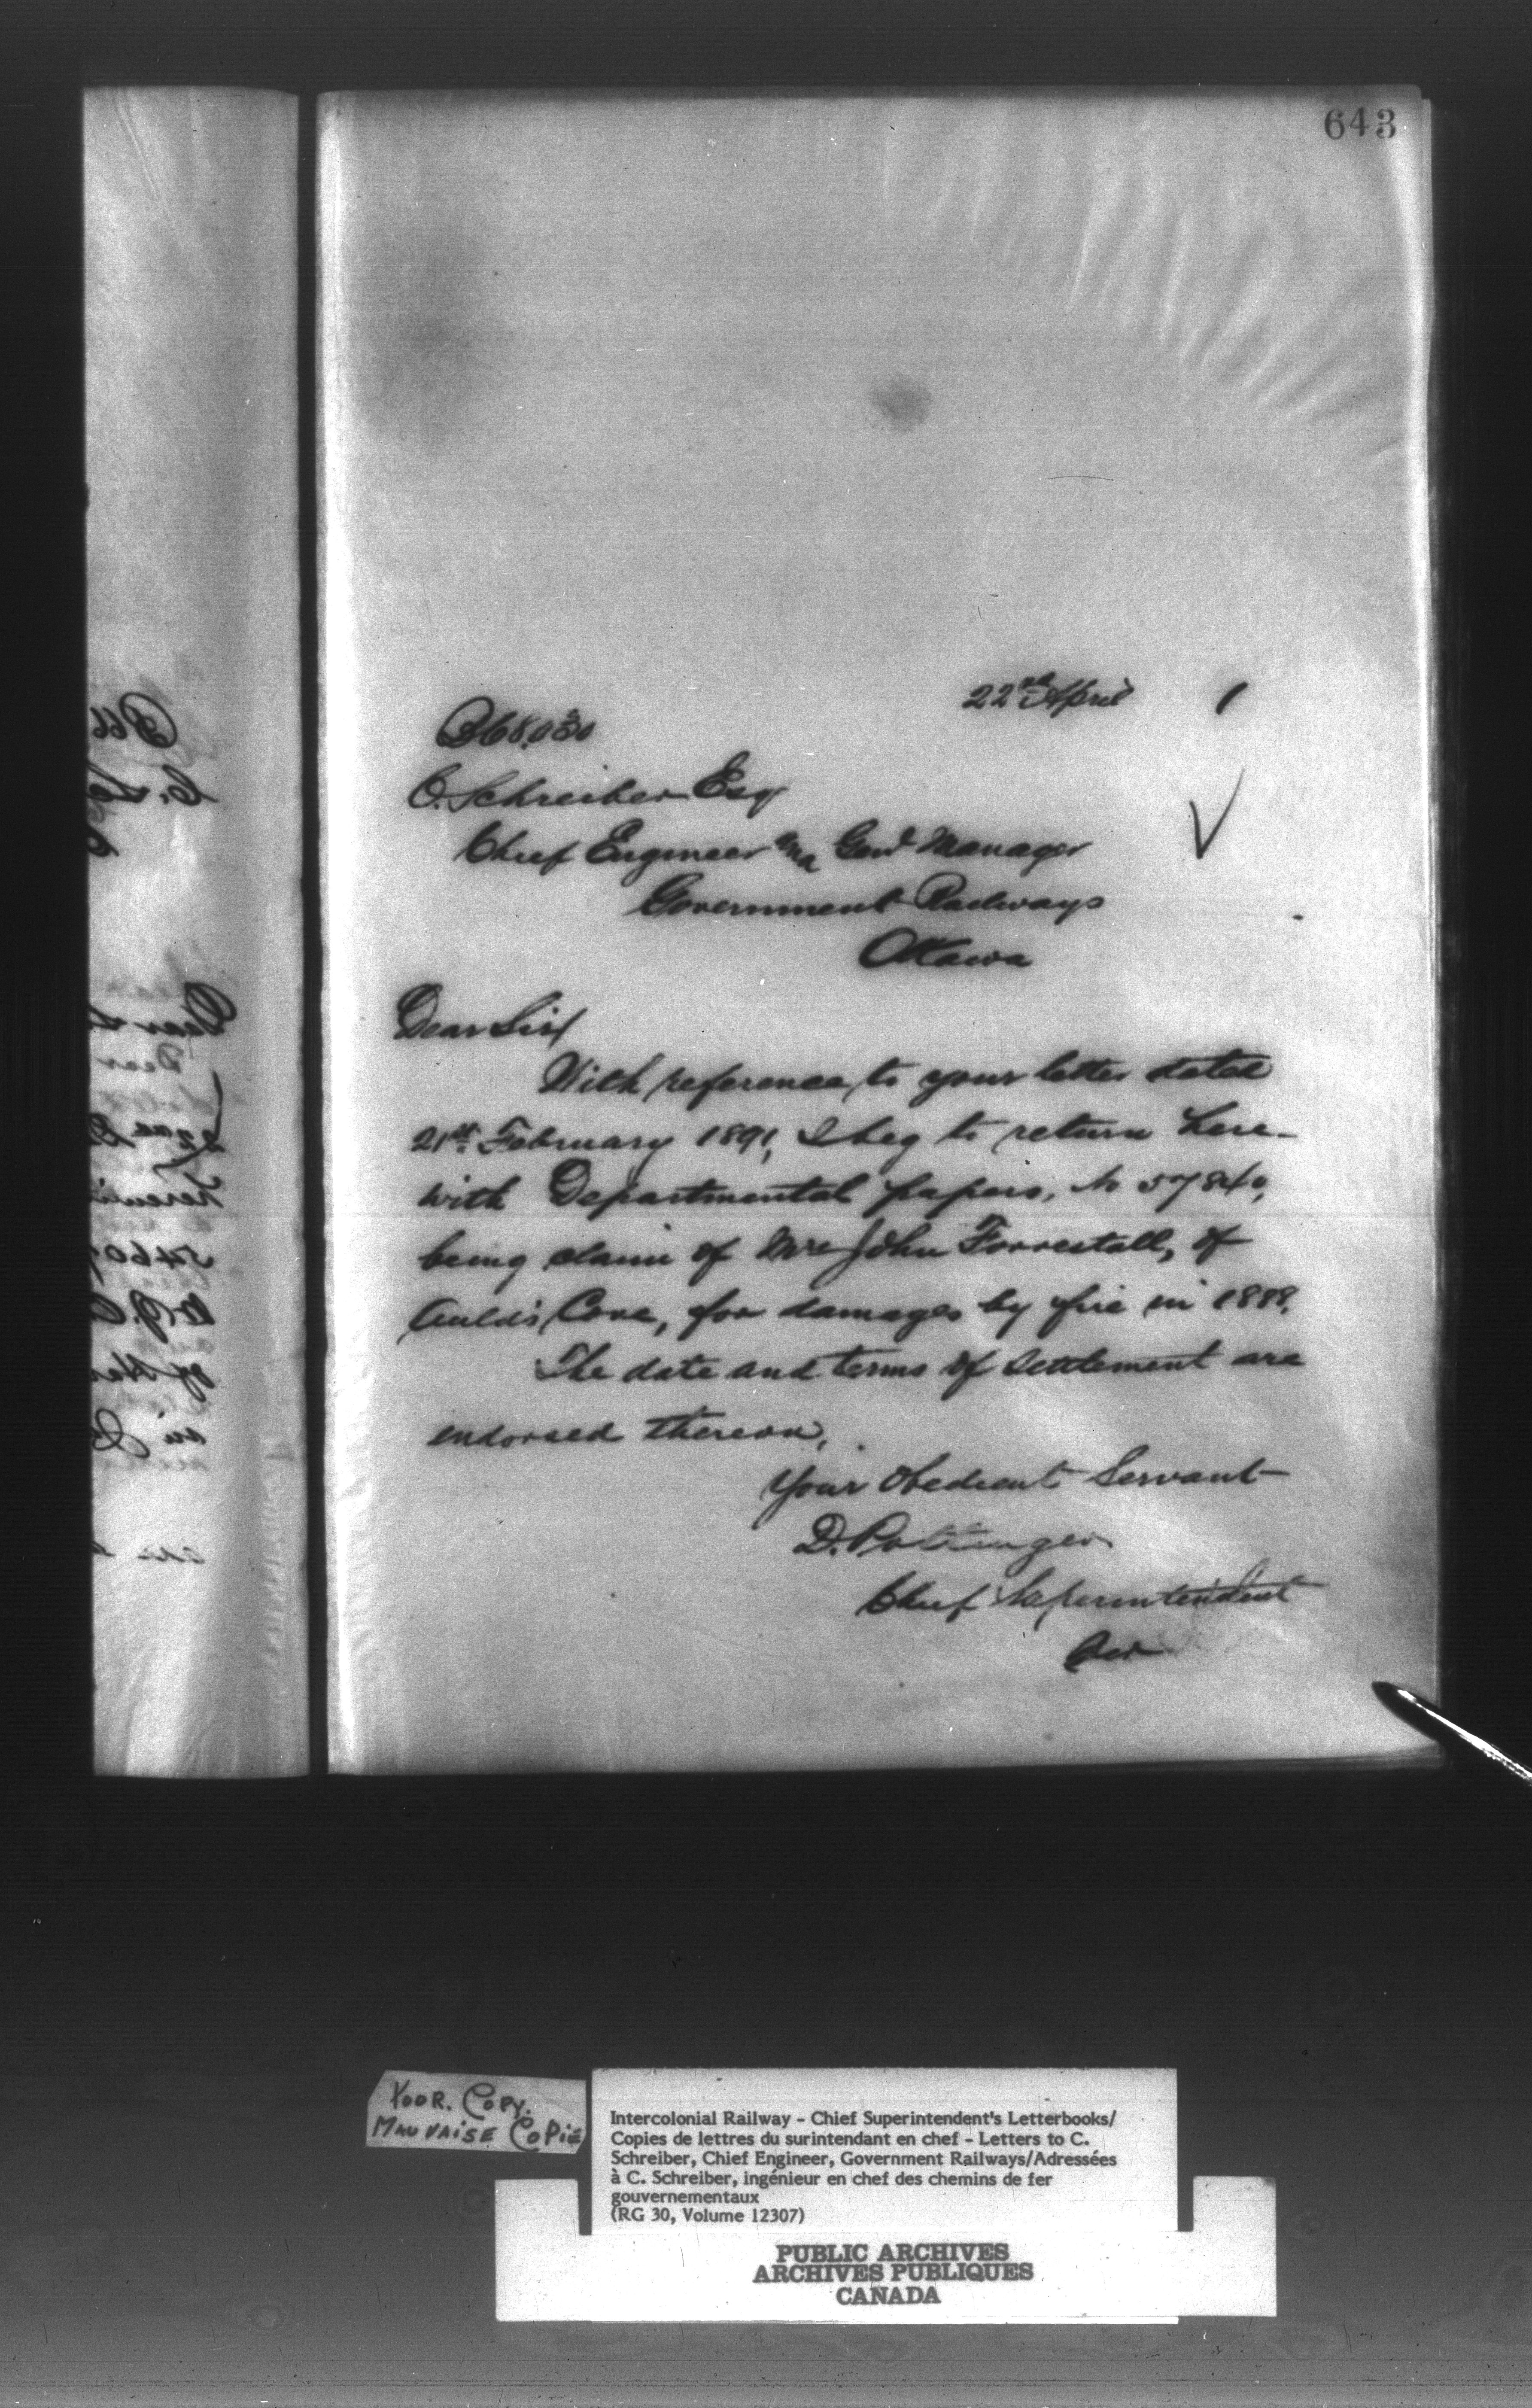 643
22nd April 1
C. Schreiber Esq
Chief Engineer and Genl Manager
Government Railways
Ottawa
Dear Sir/
With reference to your letter dated
21st. February 1891, I beg to return here-
with Departmental papers, No 57840,
being claim of Mrs John Forrestall, of
Auld's Cove, for damages by fire in 1888.
The date and terms of settlement are
endorsed thereon.
Your Obedient Servant
D. Pottinger
Chief Superintendent
POOR. COPY.
MAUVAISE COPIE
Intercolonial Railway - Chief Superintendent's Letterbooks/
Copies de lettres du surintendant en chef - Letters to C.
Schreiber, Chief Engineer, Government Railways/Adressées
à C. Schreiber, ingénieur en chef des chemins de fer
gouvernementaux
(RG 30, Volume 12307)
PUBLIC ARCHIVES
ARCHIVES PUBLIQUES
CANADA